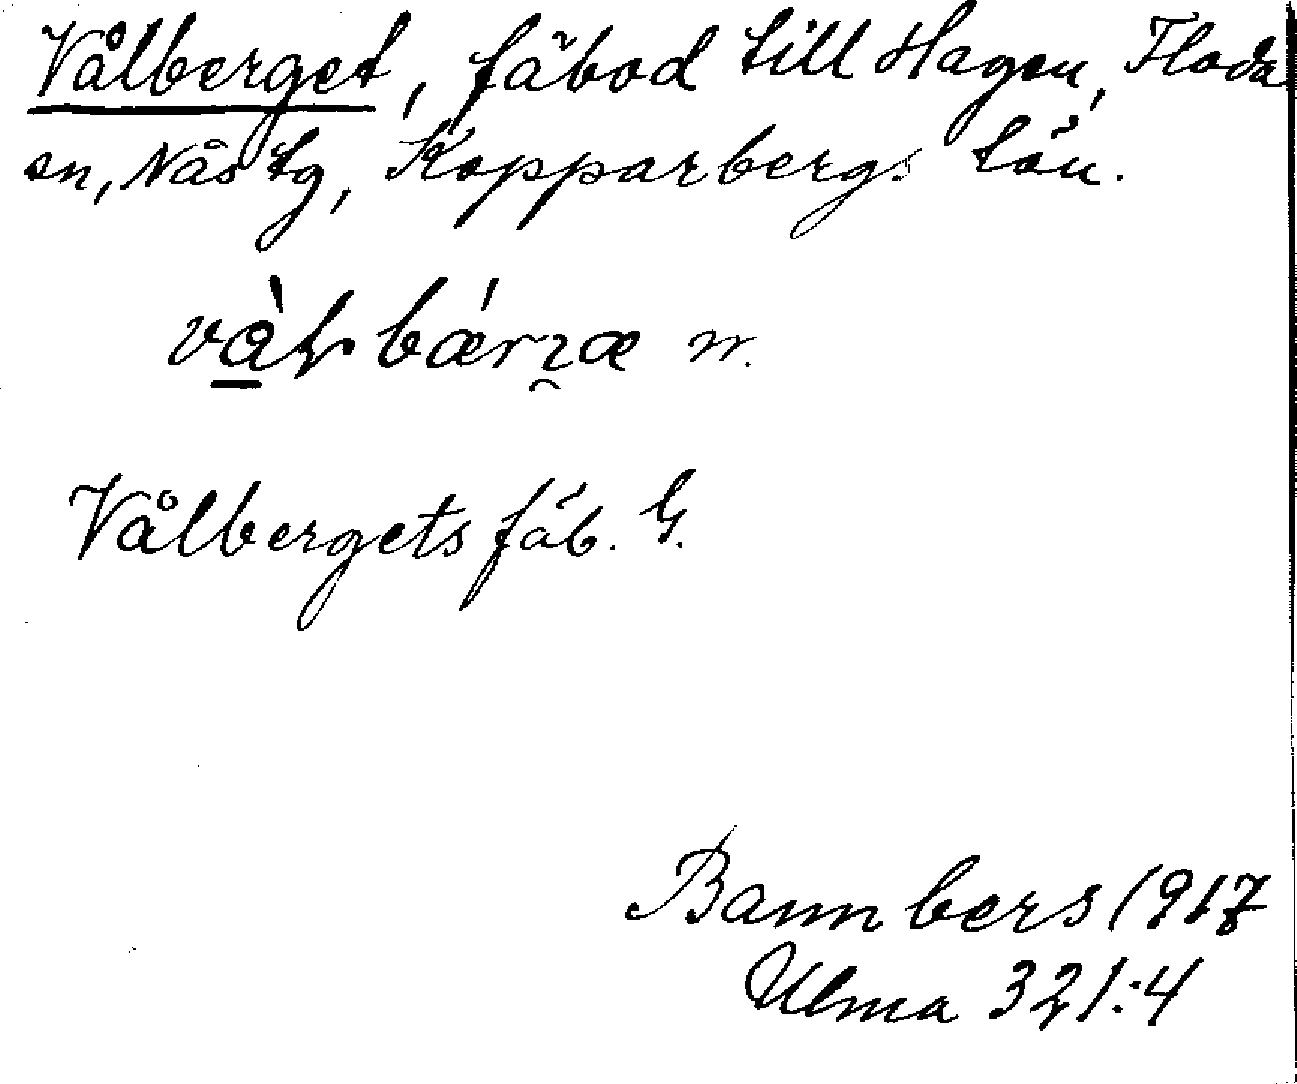 Vålberget, fäbod till Hagen, Floda
sn, Nås tg, Kopparbergs län.
n.
Vålbergets fäb. G.
Bannbers 1917
Ulma 321:4